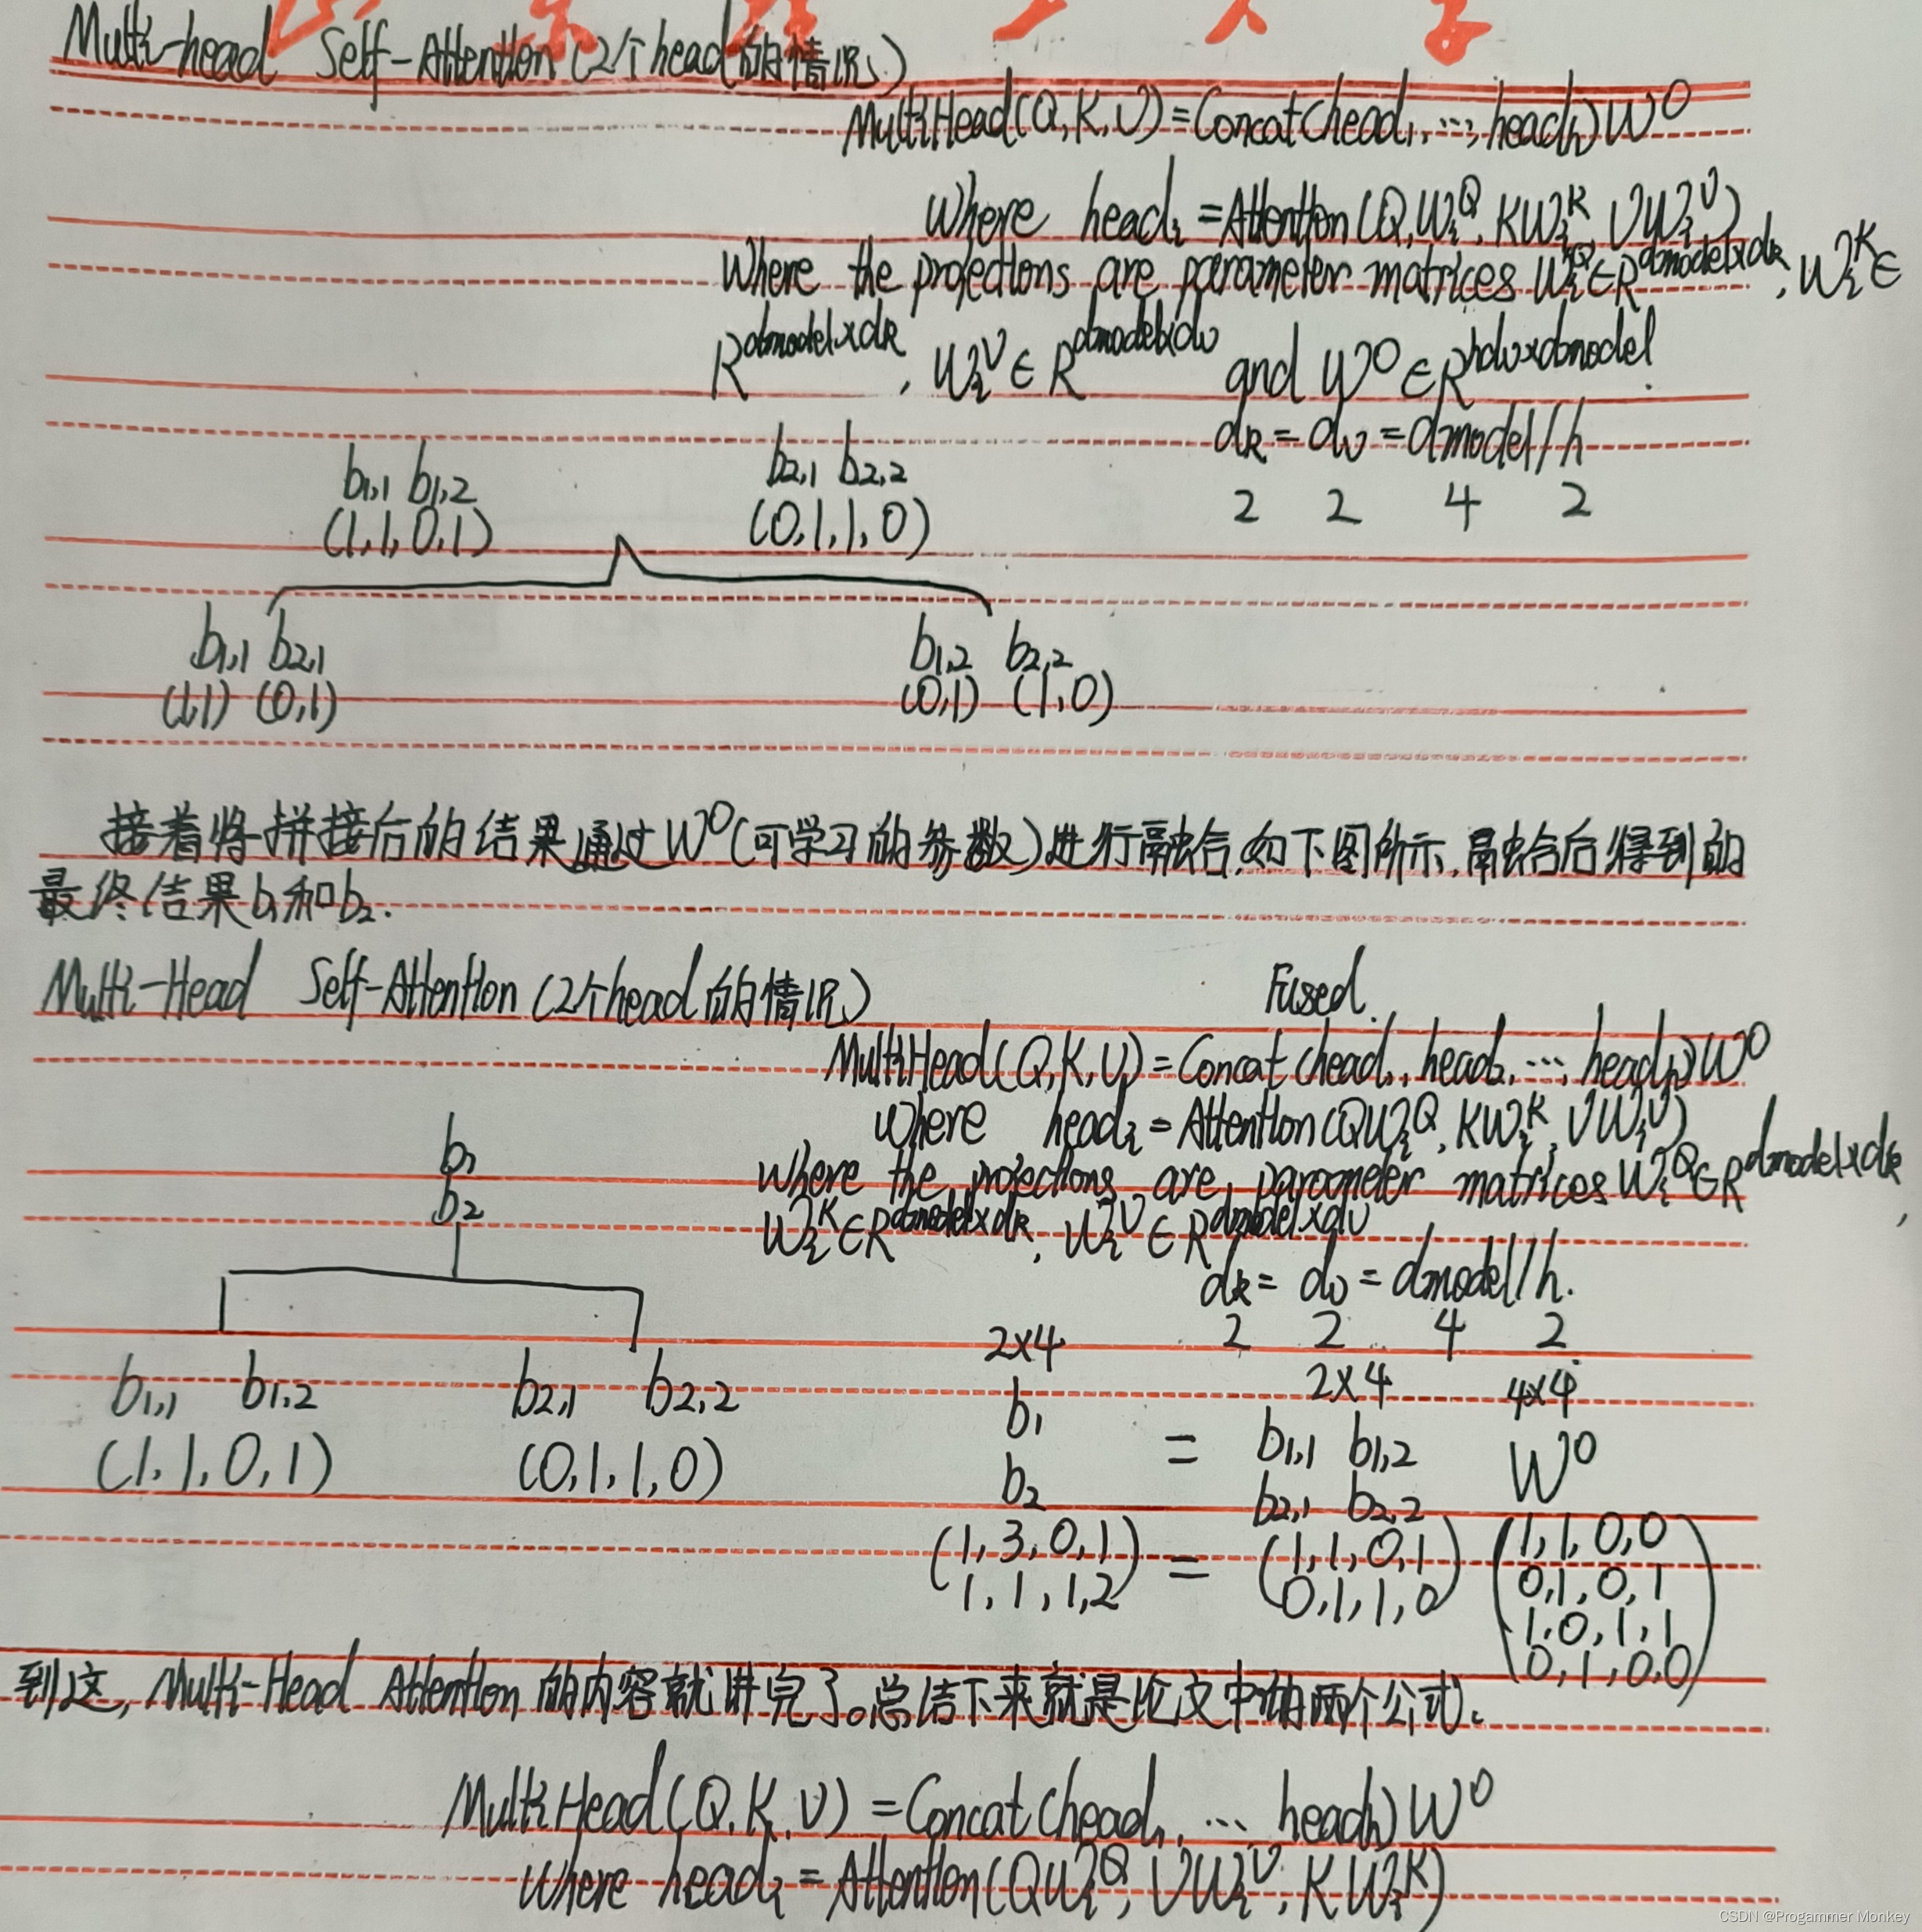 Multi-head Self-Attention (2个head的情况)
MultiHead(Q,K,V)=Concat(head₁,...,headₕ)W^O
Where headᵢ=Attention(Q,Wᵢ^Q,KWᵢ^K,VWᵢ^V)
Where the projections are parameter matrices Wᵢ^Q∈R^dmodel×dk, Wᵢ^K∈
R^dmodel×dk, Wᵢ^V∈R^dmodel×dv and W^O∈R^hdv×dmodel.
dk=dv=dmodel/h
2 2 4 2
b1,1 b1,2 b2,1 b2,2
(1,1,0,1) (0,1,1,0)
b1,1 b2,1 b1,2 b2,2
(1,1) (0,1) (0,1) (1,0)
接着将拼接后的结果通过W^O(可学习的参数)进行融合,如下图所示,融合后得到的
最终结果b₁和b₂.
Multi-Head Self-Attention (2个head的情况) Fused.
MultiHead(Q,K,V)=Concat(head₁,head₂,...,headₕ)W^O
Where headᵢ=Attention(QWᵢ^Q,KWᵢ^K,VWᵢ^V)
Where the projections are parameter matrices Wᵢ^Q∈R^dmodel×dk,
Wᵢ^K∈R^dmodel×dk, Wᵢ^V∈R^dmodel×dv
dk=dv=dmodel/h.
2 2 4 2
b₁
b₂
b1,1 b1,2 b2,1 b2,2
(1,1,0,1) (0,1,1,0)
2×4 2×4 4×4
b₁ = b1,1 b1,2 W^O
b₂ b2,1 b2,2
(1,3,0,1 = (1,1,0,1) (1,1,0,0
1,1,1,2) 0,1,1,0 0,1,0,1
1,0,1,1
0,1,0,0)
到这,Multi-Head Attention的内容就讲完了。总结下来就是论文中的两个公式。
MultiHead(Q,K,V)=Concat(head₁,...headₕ)W^O
Where headᵢ=Attention(QWᵢ^Q,VWᵢ^V,KWᵢ^K)
CSDN @Progammer Monkey